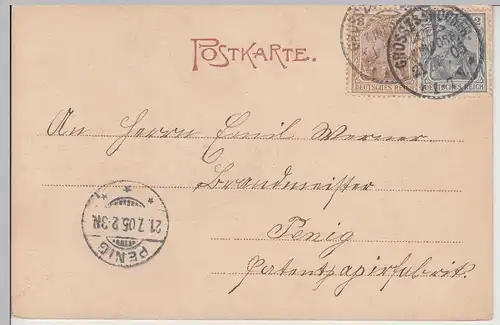 POSTKARTE.
DEUTSCHES REICH
2
DEUTSCHES REICH
An Herrn Emil Werner
Brandmeister
Penig
Patentpapierfabrik.
21.7.05.2-3N.
PENIG